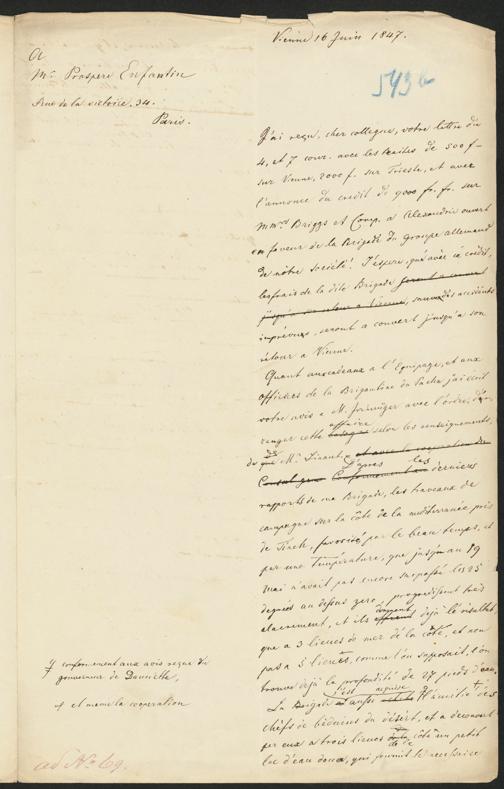 Vienne 16 Juin 1847.
A
Mr. Prospere Enfantin
Rue de la victoire. 34.
Paris.
593b
J'ai reçu, cher collegue, votre lettre du
4, et 7 cour. avec les traites de 500 f
sur Vienne, 2000 f. sur Trieste, et avec
l'annonce du credit de 9000 fr. fr. sur
Mmrs Briggs et Comp. a Alexandrie ouvert
en faveur de la Brigade du groupe allemand
de nôtre societé! J'espere, qu'avec ce credit,
les frais de la dite Brigade seront a couvert
jusqu'a son retour a Vienne, sauve des accidents
imprévus, seront a couvert jusqu'a son
retour a Vienne.
Quant aux cadeaux a l'Equipage, et aux
officiers de la Brigantine du Pacha j'ai écrit
votre avis a M. avec l'ordre, d'ar-
ranger cette affaire selon les renseignements,
de Mr. Linant, et avec la cooperation du
Consul
D'après les derniers
rapports de ma Brigade, les travaux de
campagne sur la côte de la mediterranée près
de Tineh, favorisés par le beau temps, et
par une température, que jusqu'au 19
Mai n'avait pas encore surpassé les 25
degrés au dessus zero, progredissent très
clairement, et ils donnent deja le resultat,
que a 3 lieues de mer de la côte, et non
pas a 5 lieues, comme l'on supposait, l'on
trouve deja la profondité de 27 pieds d'eau.
La Brigade s'est aussi acquise l'amitié des
chefs de béduins du désert, et a decouvert
par eux a trois lieues de la côte un petit
lac d'eau doux, qui fournit le necessaire
conformement aux avis reçus du
gouverneur de Damiette,
et meme la cooperation
ad No 69.